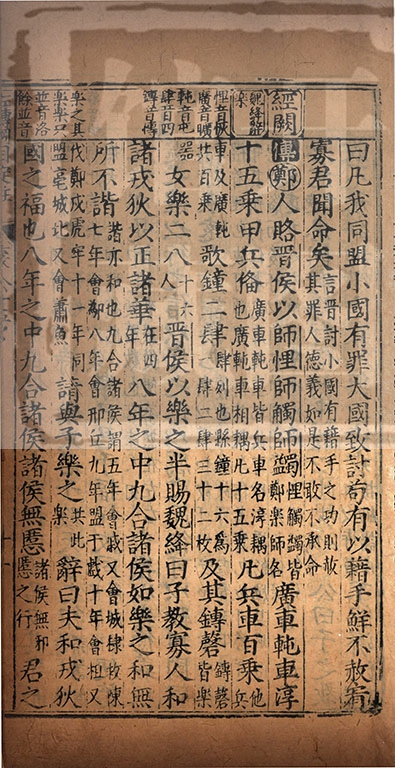 曰凡我同盟小國有罪大國致討苟有以藉手鮮不赦宥
寡君聞命矣言晉討小國有藉手之功則赦其罪人德義如是不敢不承命
經闕
魏絳辭樂
傳鄭人賂晉侯以師悝師觸師蠲悝觸蠲皆鄭樂師名廣車軘車淳
十五乘甲兵備廣車軘車皆兵車名淳耦也廣軘車相耦凡十五乘凡兵車百乘他兵
悝音恢
廣音曠
軘音屯
肆音四
車及廣軘共百乘歌鐘二肆肆列也縣鐘十六為一肆二肆三十二枚及其鎛磬鎛磬皆樂
器女樂二八十六人晉侯以樂之半賜魏絳曰子教寡人和
諸戎狄以正諸華在四年八年之中九合諸侯如樂之和無
所不諧諧亦和也九合諸侯謂五年會戚又會城棣救陳七年會鄬八年會邢丘九年盟于戲十年會柤又
樂之其
樂樂只
並音洛
餘並音
伐鄭戍虎牢十一年同盟亳城北又會蕭魚請與子樂之共此樂辭曰夫和戎狄
國之福也八年之中九合諸侯諸侯無慝諸侯無邪慝之行君之